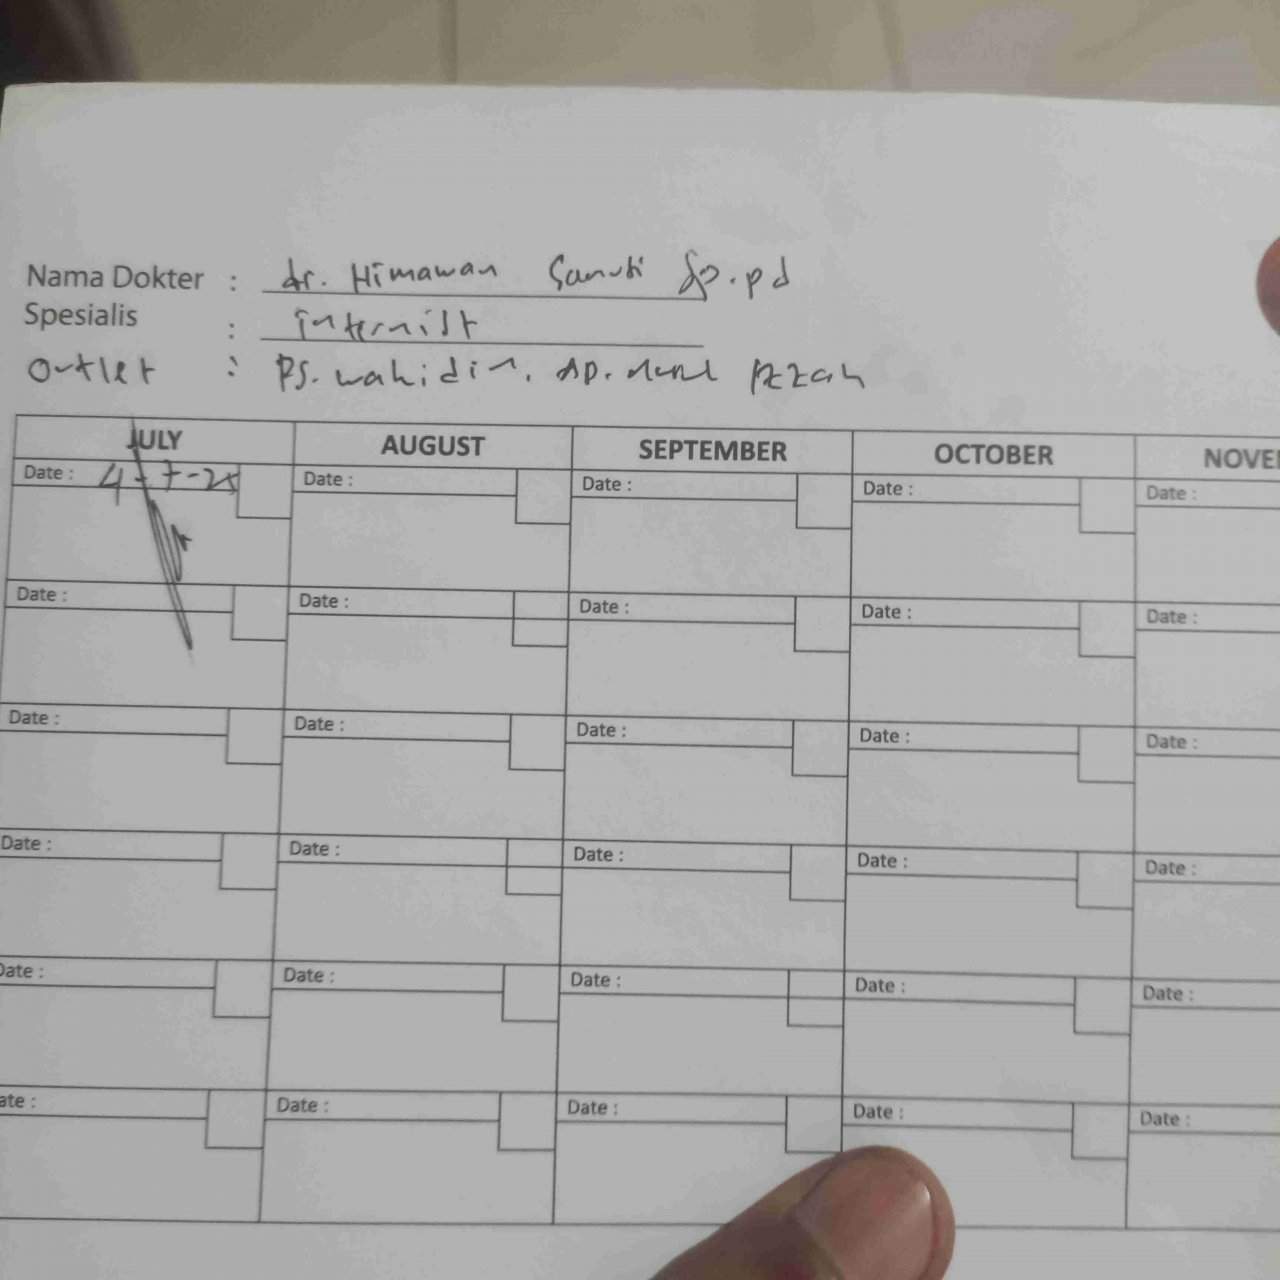 Nama Dokter : dr. Himawan Sanusi Sp.pd
Spesialis : internist
Outlet : RS. wahidin. Ap. Azzah
JULY AUGUST SEPTEMBER OCTOBER NOVE
Date : 4-7-25 Date : Date : Date : Date :
Date : Date : Date : Date : Date :
Date : Date : Date : Date : Date :
Date : Date : Date : Date : Date :
Date : Date : Date : Date : Date :
ate : Date : Date : Date : Date :